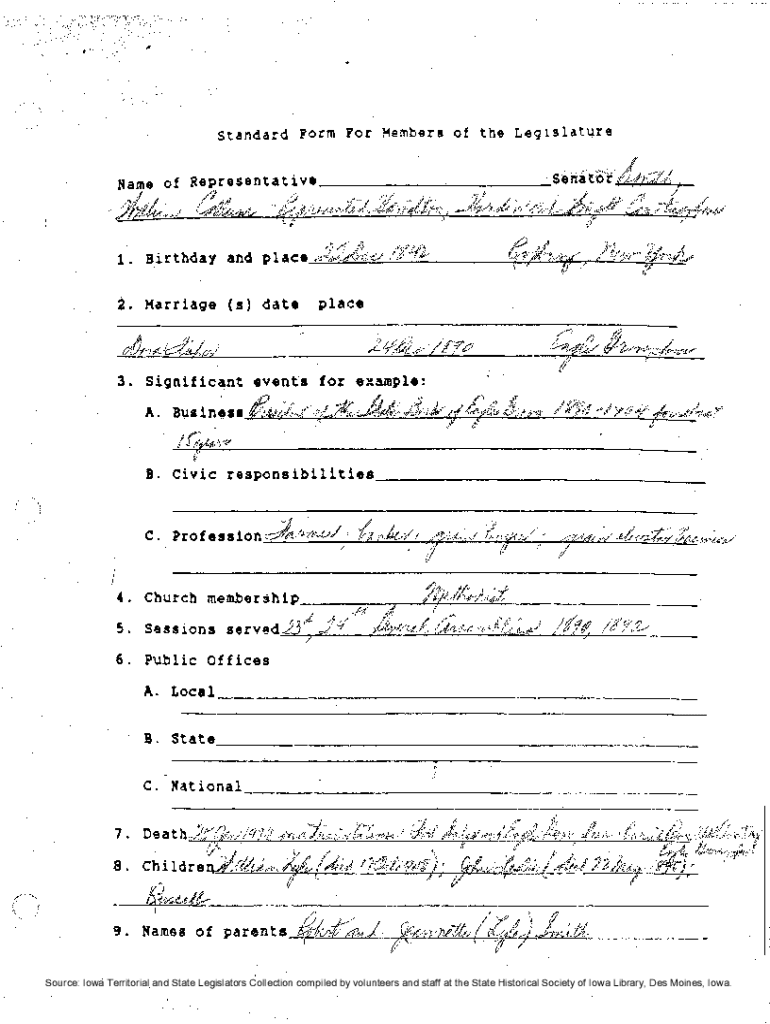 Standard Form For Members of the Legislature
Name of Representative Senator Smith,
William - Represented Hamilton, Hardin and Wright Counties, Iowa
1. Birthday and place 22 Dec 1842 New York
2. Marriage (s) date place
Dora 24 Dec 1890 Eagle Grove, Iowa
3. Significant events for example:
A. Business President of the State Bank of Eagle Grove 1892-1904, for about
15 years
B. Civic responsibilities
C. Profession Farmer; banker; grain buyer; grain elevator business
4. Church membership Methodist
5. Sessions served 23rd, 24th General Assemblies 1890, 1892
6. Public Offices
A. Local
B. State
C. National
7. Death on train
Eagle Grove, Iowa
8. Children William Lyle (died 1908); John Leslie (died 22 May 1895);
Russell
9. Names of parents Robert and Jeannette (Lyle) Smith
Source: Iowa Territorial and State Legislators Collection compiled by volunteers and staff at the State Historical Society of Iowa Library, Des Moines, Iowa.